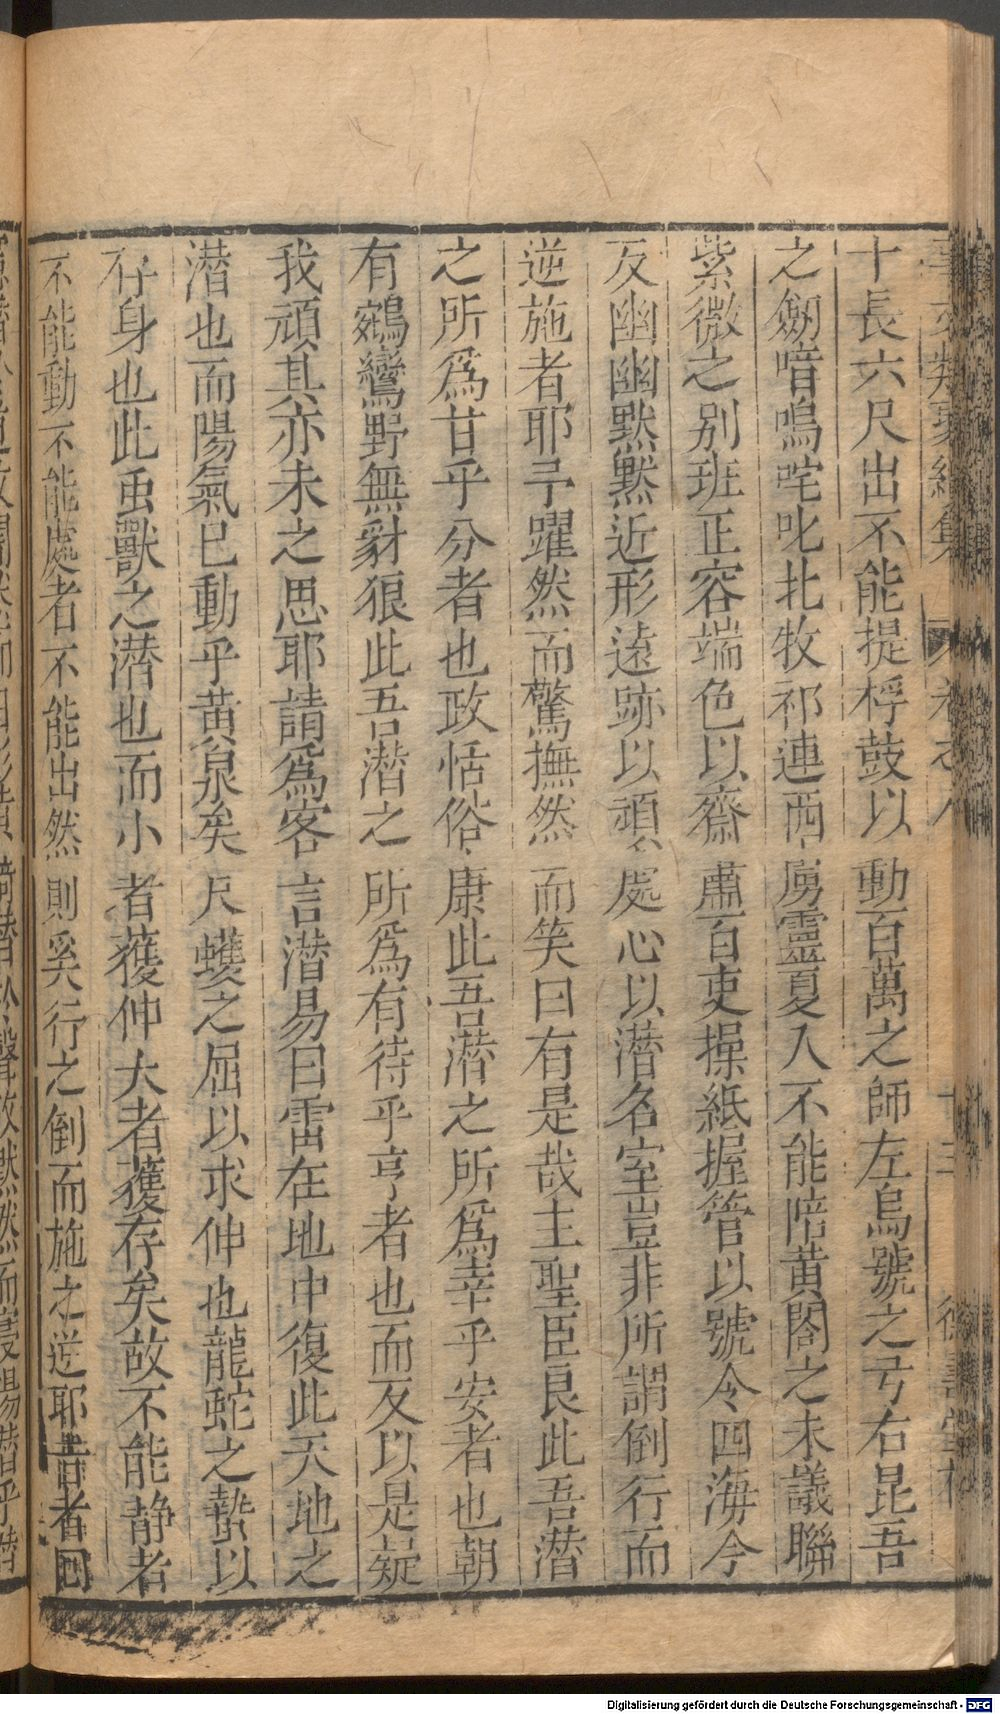 十長六尺出不能提桴鼓以動百萬之師左烏號之弓右昆吾
之劒喑嗚咤叱北牧祁連西虜靈夏入不能陪黃閣之末議聯
紫微之別班正容端色以齋肅百吏操紙握管以號令四海今
反幽幽默默近形遠跡以頑處心以潛名室豈非所謂倒行而
逆施者耶予躍然而驚撫然而笑曰有是哉主聖臣良此吾潛
之所爲甘乎分者也政恬俗康此吾潛之所爲幸乎安者也朝
有鵷鸞野無豺狼此吾潛之所爲有待乎亨者也而反以是疑
我頑其亦未之思耶請爲客言潛易曰雷在地中復此天地之
潛也而陽氣已動乎黃泉矣尺蠖之屈以求伸也龍蛇之蟄以
存身也此虫獸之潛也而小者獲伸大者獲存矣故不能靜者
不能動不能處者不能出然則奚行之倒而施之逆耶昔者回
Digitalisierung gefördert durch die Deutsche Forschungsgemeinschaft - DFG